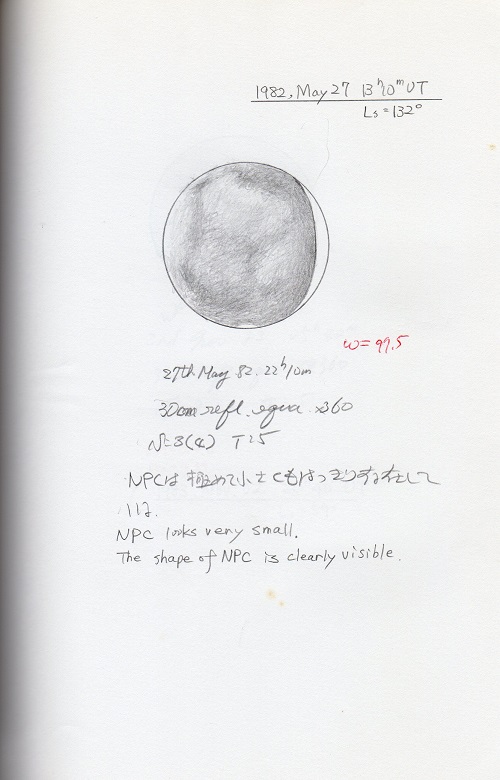 1982, May 27 13h10m UT
Ls = 132°
ω = 99.5
27th May 82. 22h10m
30cm refl. equa. ×360
T=5
NPCは極めて小さくもはっきり存在して
いた.
NPC looks very small.
The shape of NPC is clearly visible.